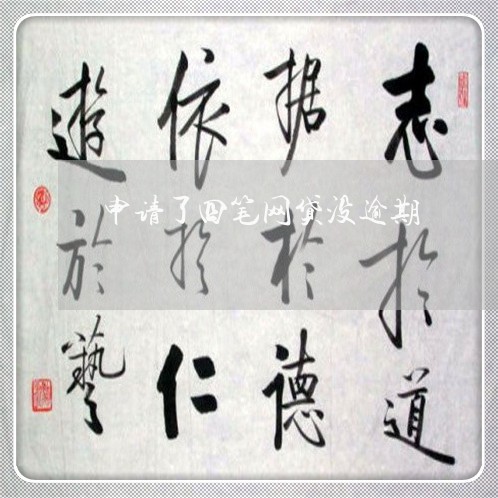 志於道
据於德
依於仁
遊於藝
申请了四笔网贷没逾期